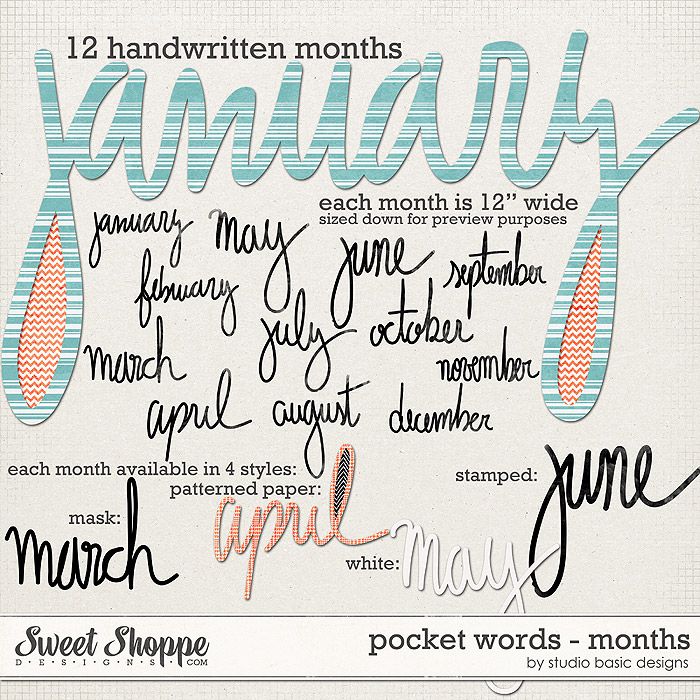 12 handwritten months
january
each month is 12" wide
sized down for preview purposes
january may june september
february july october
march november
april august december
each month available in 4 styles:
patterned paper: april
stamped: june
mask: march
white: may
Sweet Shoppe
D·E·S·I·G·N·S·.COM
pocket words - months
by studio basic designs